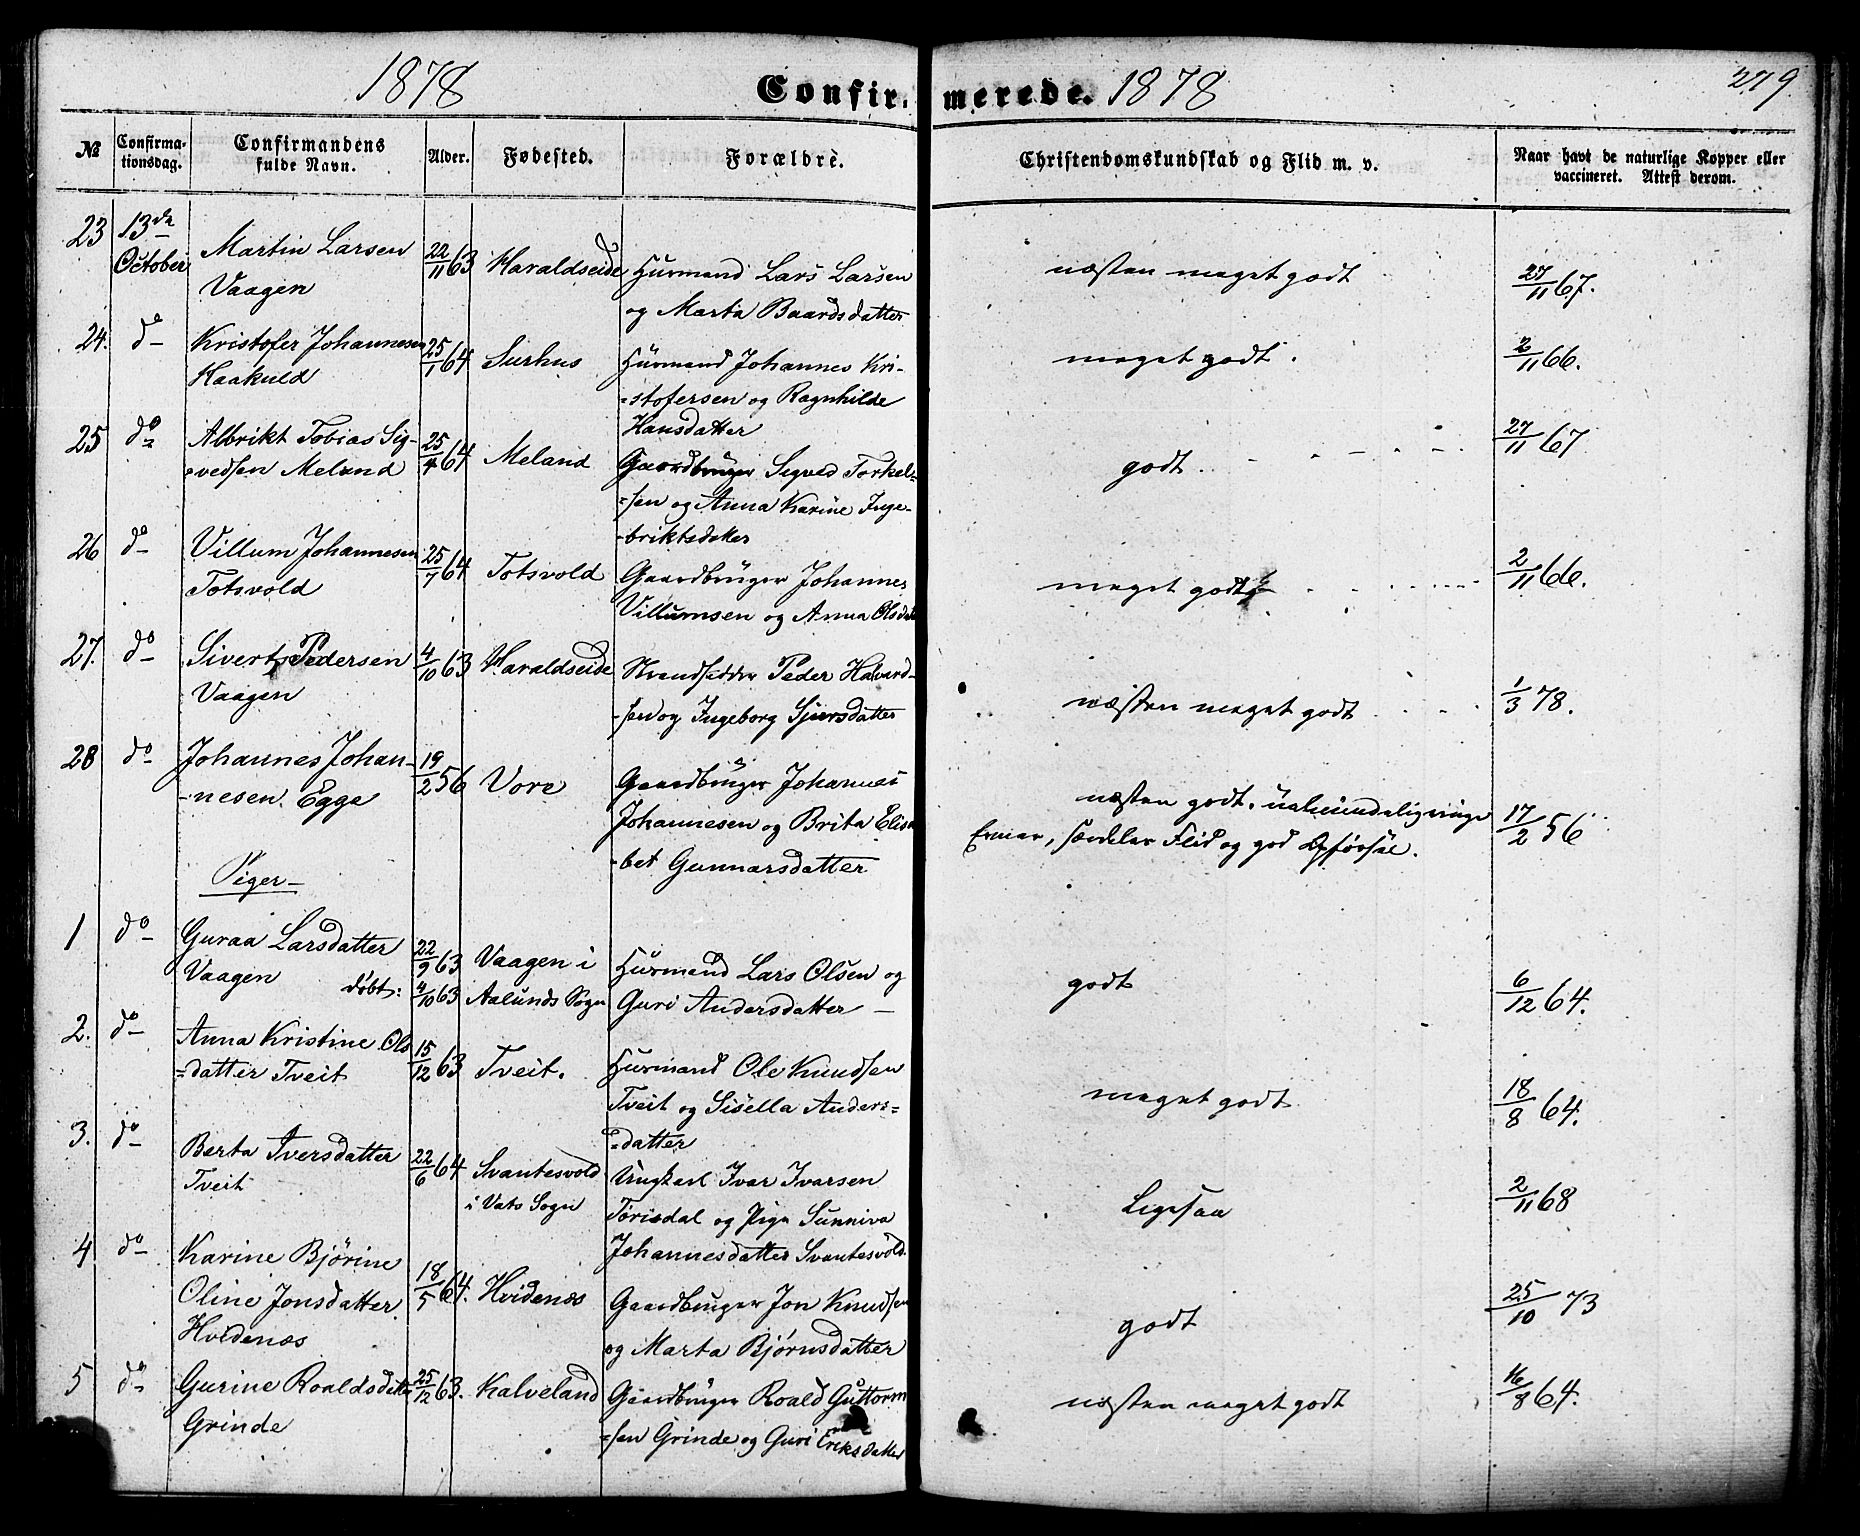 1878
Confir-
merede. 1878
279.
№
Confirma-
tionsdag.
Confirmandens
fulde Navn.
Alder.
Fødested.
Forældre.
Christendomskundskab og Flid m. v.
Naar havt de naturlige Kopper eller
vaccineret. Attest derom.
23 13de October
Martin Larsen
Vaagen
22/11 63
Haraldseide
Huusmand Lars Larsen
og Marta Baardsdatter
næsten meget godt
27/11 67.
24. do
Kristofer Johannesen
Haakuld
25/1 64
Surhus
Huusmand Johannes Kri-
=stofersen og Ragnhilde
Hansdatter
meget godt.
2/11 66.
25 do
Albrikt Tobias Sig-
=vedsen Meland
25/4 64
Meland
Gaardbruger Sigved Torkel-
=sen og Anna Karine Inge-
-briktsdatter
godt.
27/11 67.
26 do
Villum Johannesen
Totsvold
25/7 64
Totsvold
Gaardbruger Johannes
Villumsen og Anna Olsdat
meget godt
2/11 66.
27. do
Sivert Pedersen
Vaagen
4/10 63
Haraldseide
Strandsidder Peder Halvard-
-sen og Ingeborg Sjursdatter
næsten meget godt
1/3 78.
28 do
Johannes Johan-
-nesen Egge
19/2 56
Vore
Gaardbruger Johannes
Johannesen og Brita Elisa
-bet Gunnarsdatter
næsten godt. ualmindelig ringe
Evner, særdeles Flid og god Opførsel.
17/2 56
Piger
1 do
Guraa Larsdatter
Vaagen døbt:
22/9 63
4/10 63
Vaagen i
Aalunds Sogn
Huusmand Lars Olsen og
Guri Andersdatter
godt
6/12 64.
2. do
Anna Kristine Ols
=datter Tveit
15/12 63
Tveit.
Huusmand Ole Knudsen
Tveit og Sisella Anders=
=datter
meget godt
18/8 64.
3. do
Berta Iversdatter
Tveit
22/6 64
Svantesvold
i Vats Sogn
Ungkarl Ivar Ivarsen
Torisdal og Pige Sunniva
Johannesdatter Svantesvold.
Ligesaa
2/11 68
4 do
Karine Bjørine
Oline Jonsdatter
Hvidenæs
18/5 64.
Hvidenæs
Gaardbruger Jon Knudsen
og Marta Bjørnsdatter
godt
25/10 73
5 do
Gurine Roaldsdatter
Grinde
25/12 63.
Kalveland
Gaardbruger Roald Guttorm
=sen Grinde og Guri Eriksdatter
næsten meget godt
16/8 64.